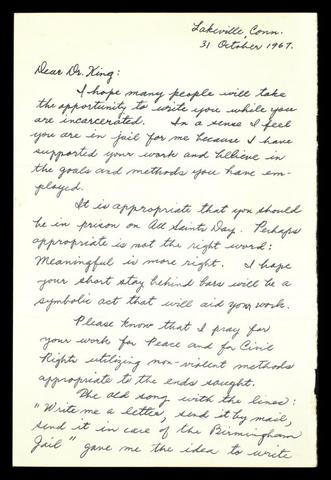 Lakeville, Conn.
31 October 1967.
Dear Dr. King:
I hope many people will take
the opportunity to write you while you
are incarcerated. In a sense I feel
you are in jail for me because I have
supported your work and believe in
the goals and methods you have em-
ployed.
It is appropriate that you should
be in prison on All Saints Day. Perhaps
appropriate is not the right word:
Meaningful is more right. I hope
your short stay behind bars will be a
symbolic act that will aid your work.
Please know that I pray for
your work for Peace and for Civil
Rights utilizing non-violent methods
appropriate to the ends sought.
The old song with the lines:
"Write me a letter, send it by mail,
send it in care of the Birmingham
Jail" gave me the idea to write